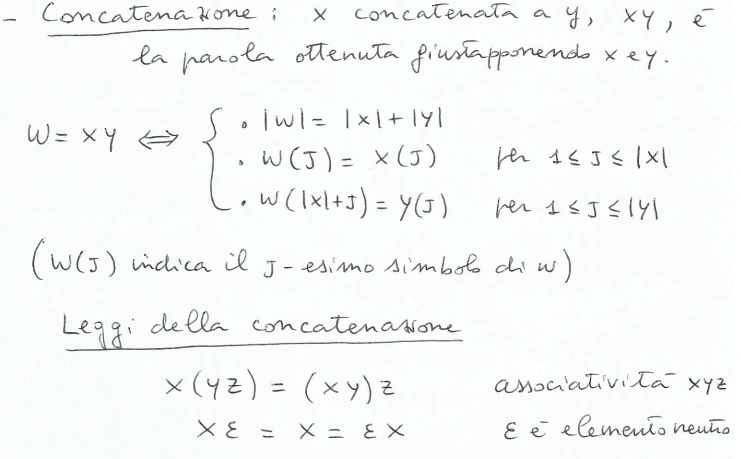 - Concatenazione : x concatenata a y, xy, è
la parola ottenuta giustapponendo x e y.
• |w| = |x| + |y|
w = xy ⟺ { • w(J) = x(J) per 1 ≤ J ≤ |x|
• w(|x|+J) = y(J) per 1 ≤ J ≤ |y|
(w(J) indica il J-esimo simbolo di w)
Leggi della concatenazione
x(yz) = (xy)z associatività xyz
xε = x = εx ε è elemento neutro